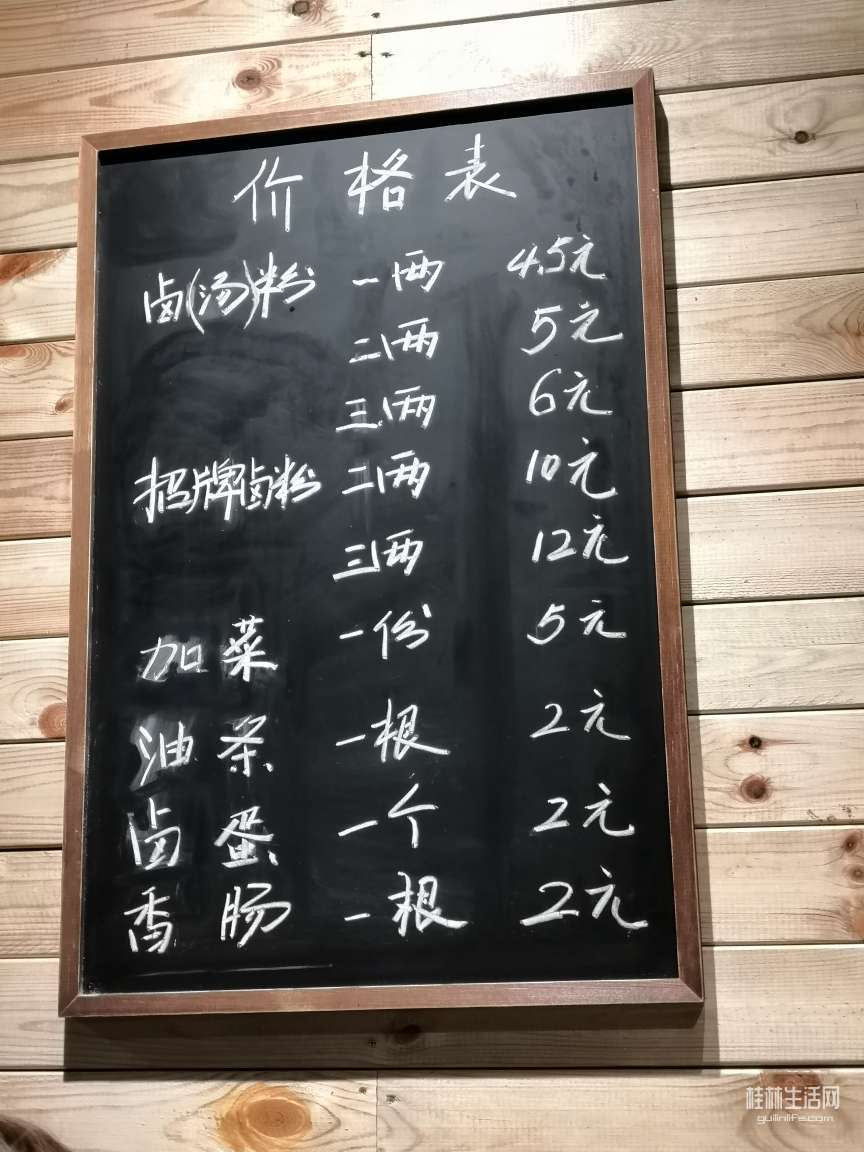 价格表
卤(汤)粉 一两 4.5元
二两 5元
三两 6元
招牌卤粉 二两 10元
三两 12元
加菜 一份 5元
油条 一根 2元
卤蛋 一个 2元
香肠 一根 2元
桂林生活网
guilinlife.com